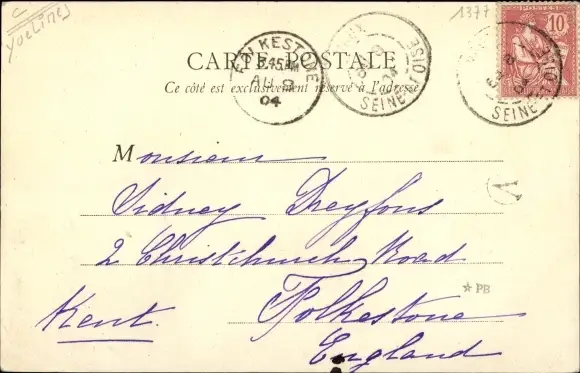 C
Yvelines
1377
10
CARTE POSTALE
Ce côté est exclusivement réservé à l'adresse
FOLKESTONE
8.45AM
AU
04
SEINE-ET-OISE
SEINE-ET-OISE
Monsieur
Sidney Dreyfous
2 Christchurch Road
Folkestone
Kent.
England
V
☆PB